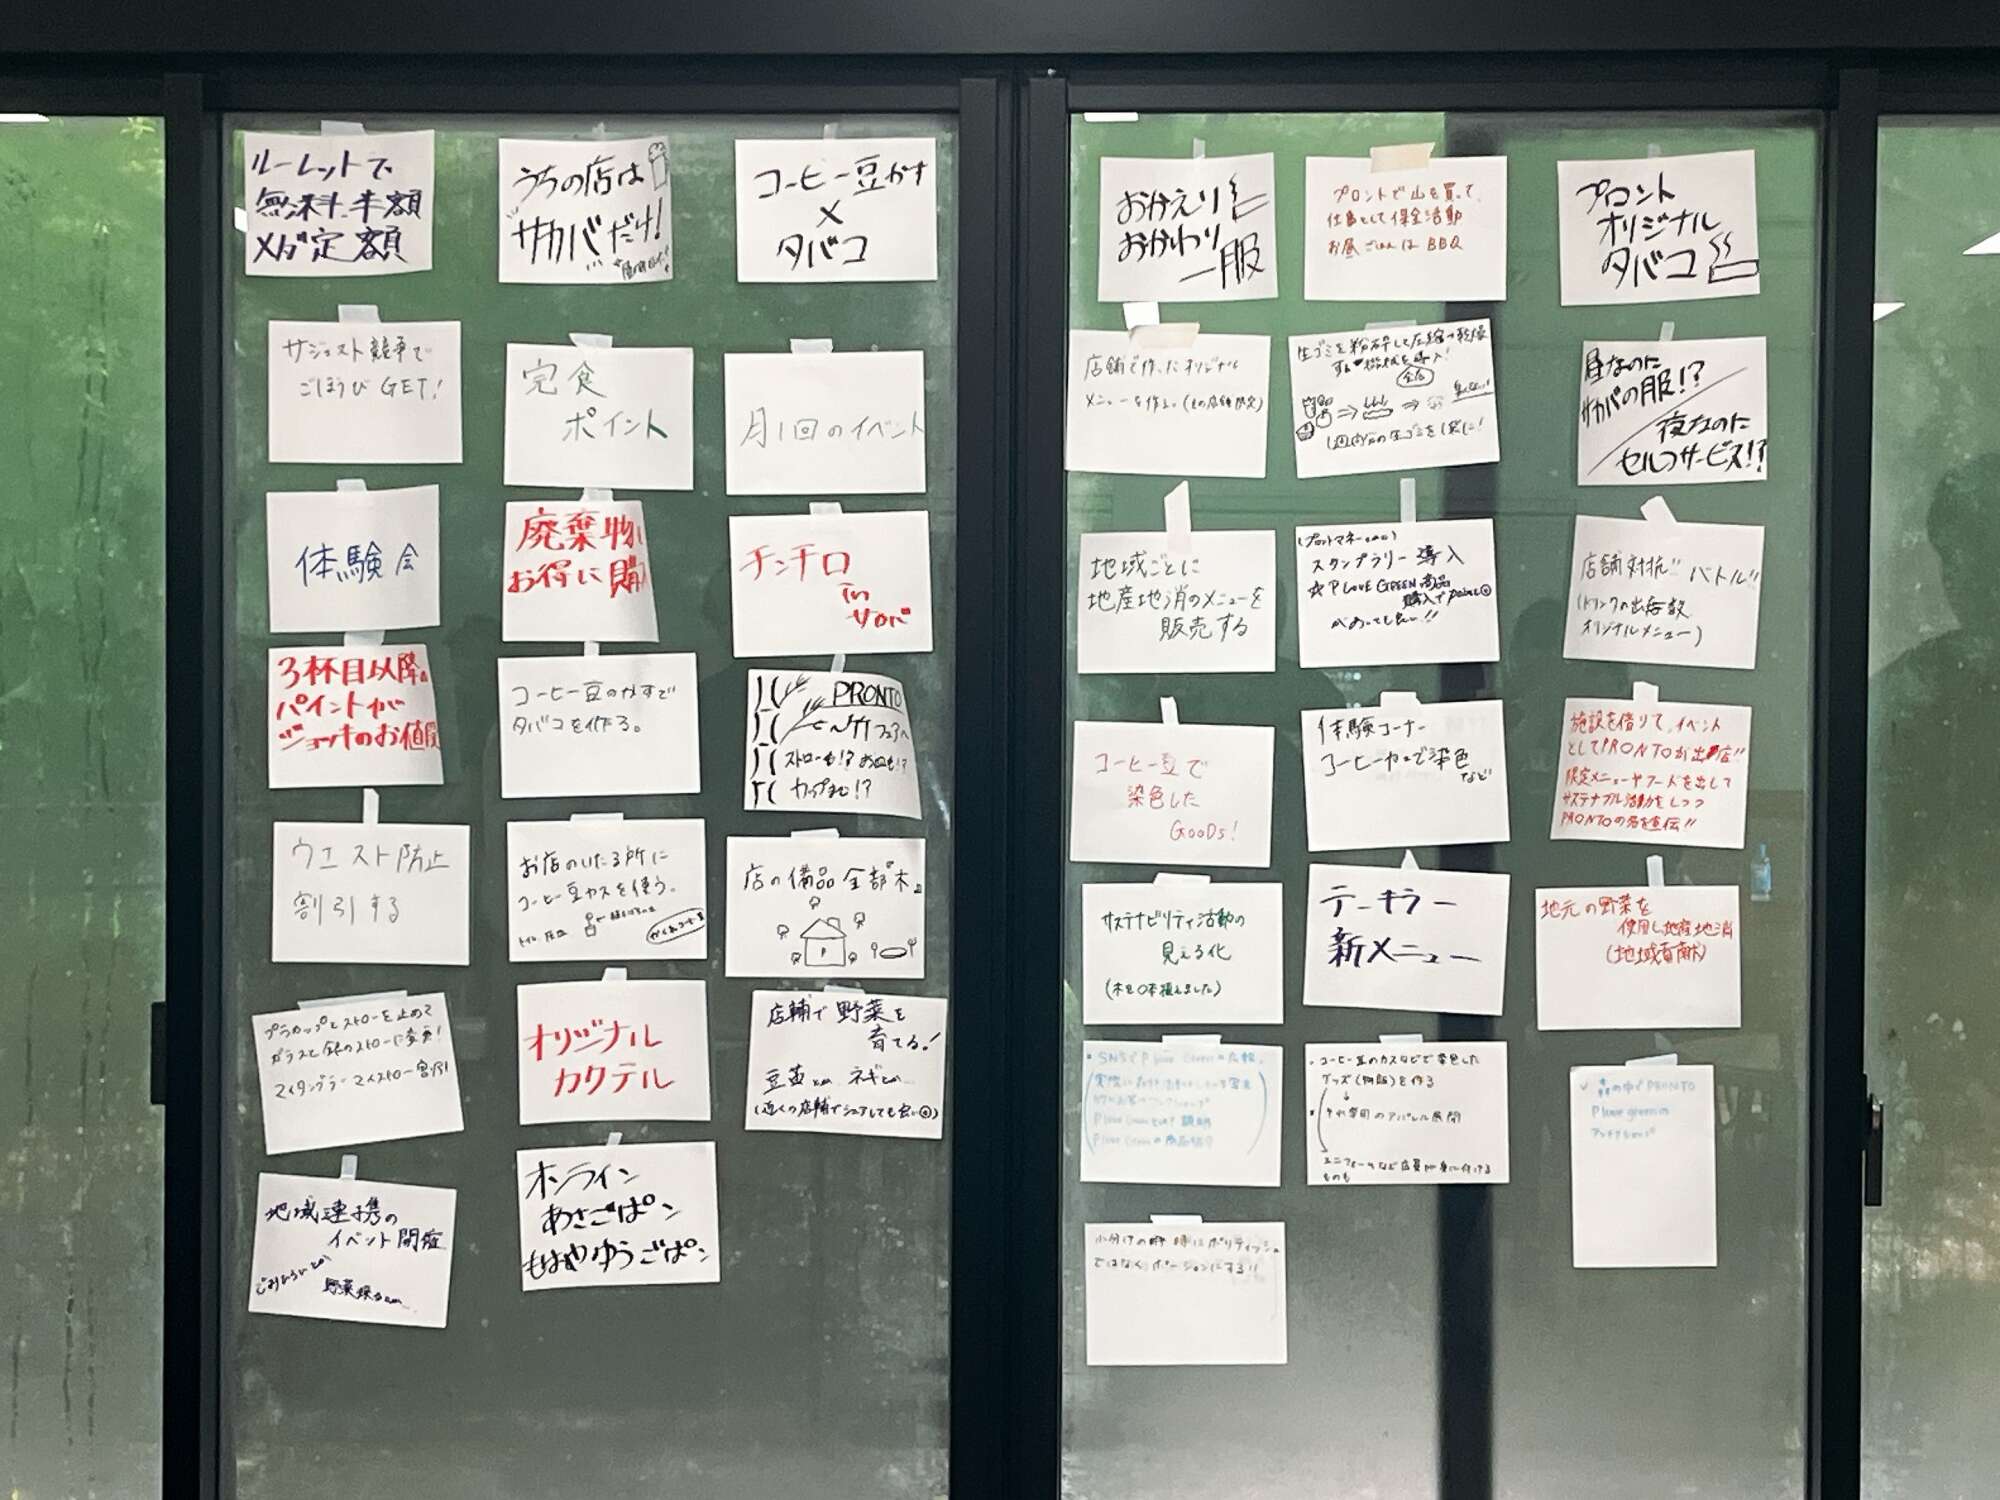 ルーレットで
無料.半額
メガ定額
うちの店は
サカバだけ!
コーヒー豆かす
×
タバコ
サジェスト競争で
ごほうびGET!
完食
ポイント
月1回のイベント
体験会
廃棄物
お得に購
チンチロ
in
サカバ
3杯目以降
パイントが
ジョッキのお値段
コーヒー豆のカすで
タバコを作る。
PRONTO
ストローも!? お皿も!?
カップまで!?
ウエスト防止
割引する
お店のいたる所に
コーヒー豆カスを使う。
店の備品全部木
プラカップとストローを止めて
ガラスと銀のストローに変更!
マイタンブラーマイストロー割引
オリジナル
カクテル
店舗で野菜を
育てる!
豆苗とか ネギとか…
(近くの店舗でシェアしても良い)
地域連携の
イベント開催
ごみひろいとか
オンライン
あさごぱン
もはやゆうごぱン
おかえり
おかわり
一服
プロントで山を買って、
仕事として保全活動
お昼ごはんはBBQ
プロント
オリジナル
タバコ
店舗で作ったオリジナル
メニューを作る。(その店舗限定)
生ゴミを粉砕して圧縮→乾燥
する機械を導入!
1週間分の生ゴミを1袋に!
昼なのに
サカバの服!?
夜なのに
セルフサービス!?
地域ごとに
地産地消のメニューを
販売する
スタンプラリー導入
☆P LOVE GREEN商品
購入でpoint
があっても良い!!
店舗対抗!! バトル!!
(ドリンクの出杯数
オリジナルメニュー)
コーヒー豆で
染色した
GOODS!
体験コーナー
コーヒーカスで染色
など
施設を借りて、イベント
としてPRONTOが出店!!
限定メニューやフードを出して
サステナブル活動をしつつ
PRONTOの名を宣伝!!
サステナビリティ活動の
見える化
(木を〇本植えました)
テキーラー
新メニュー
地元の野菜を
使用し地産地消
(地域貢献)
・コーヒー豆のカスなどで染色した
グッズ(物販)を作る
↓
・それ専用のアパレル展開
ユニフォームなど店員が身に付ける
ものも
の中でPRONTO
P love green
ではなく、ポーションにする!!